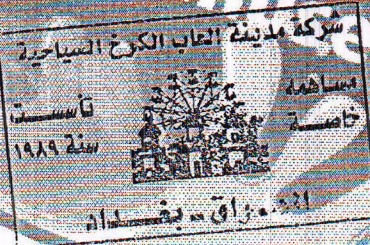 شركة مدينة العاب الكرخ السياحية
مساهمة
خاصة
تأسست
سنة ١٩٨٩
بغداد